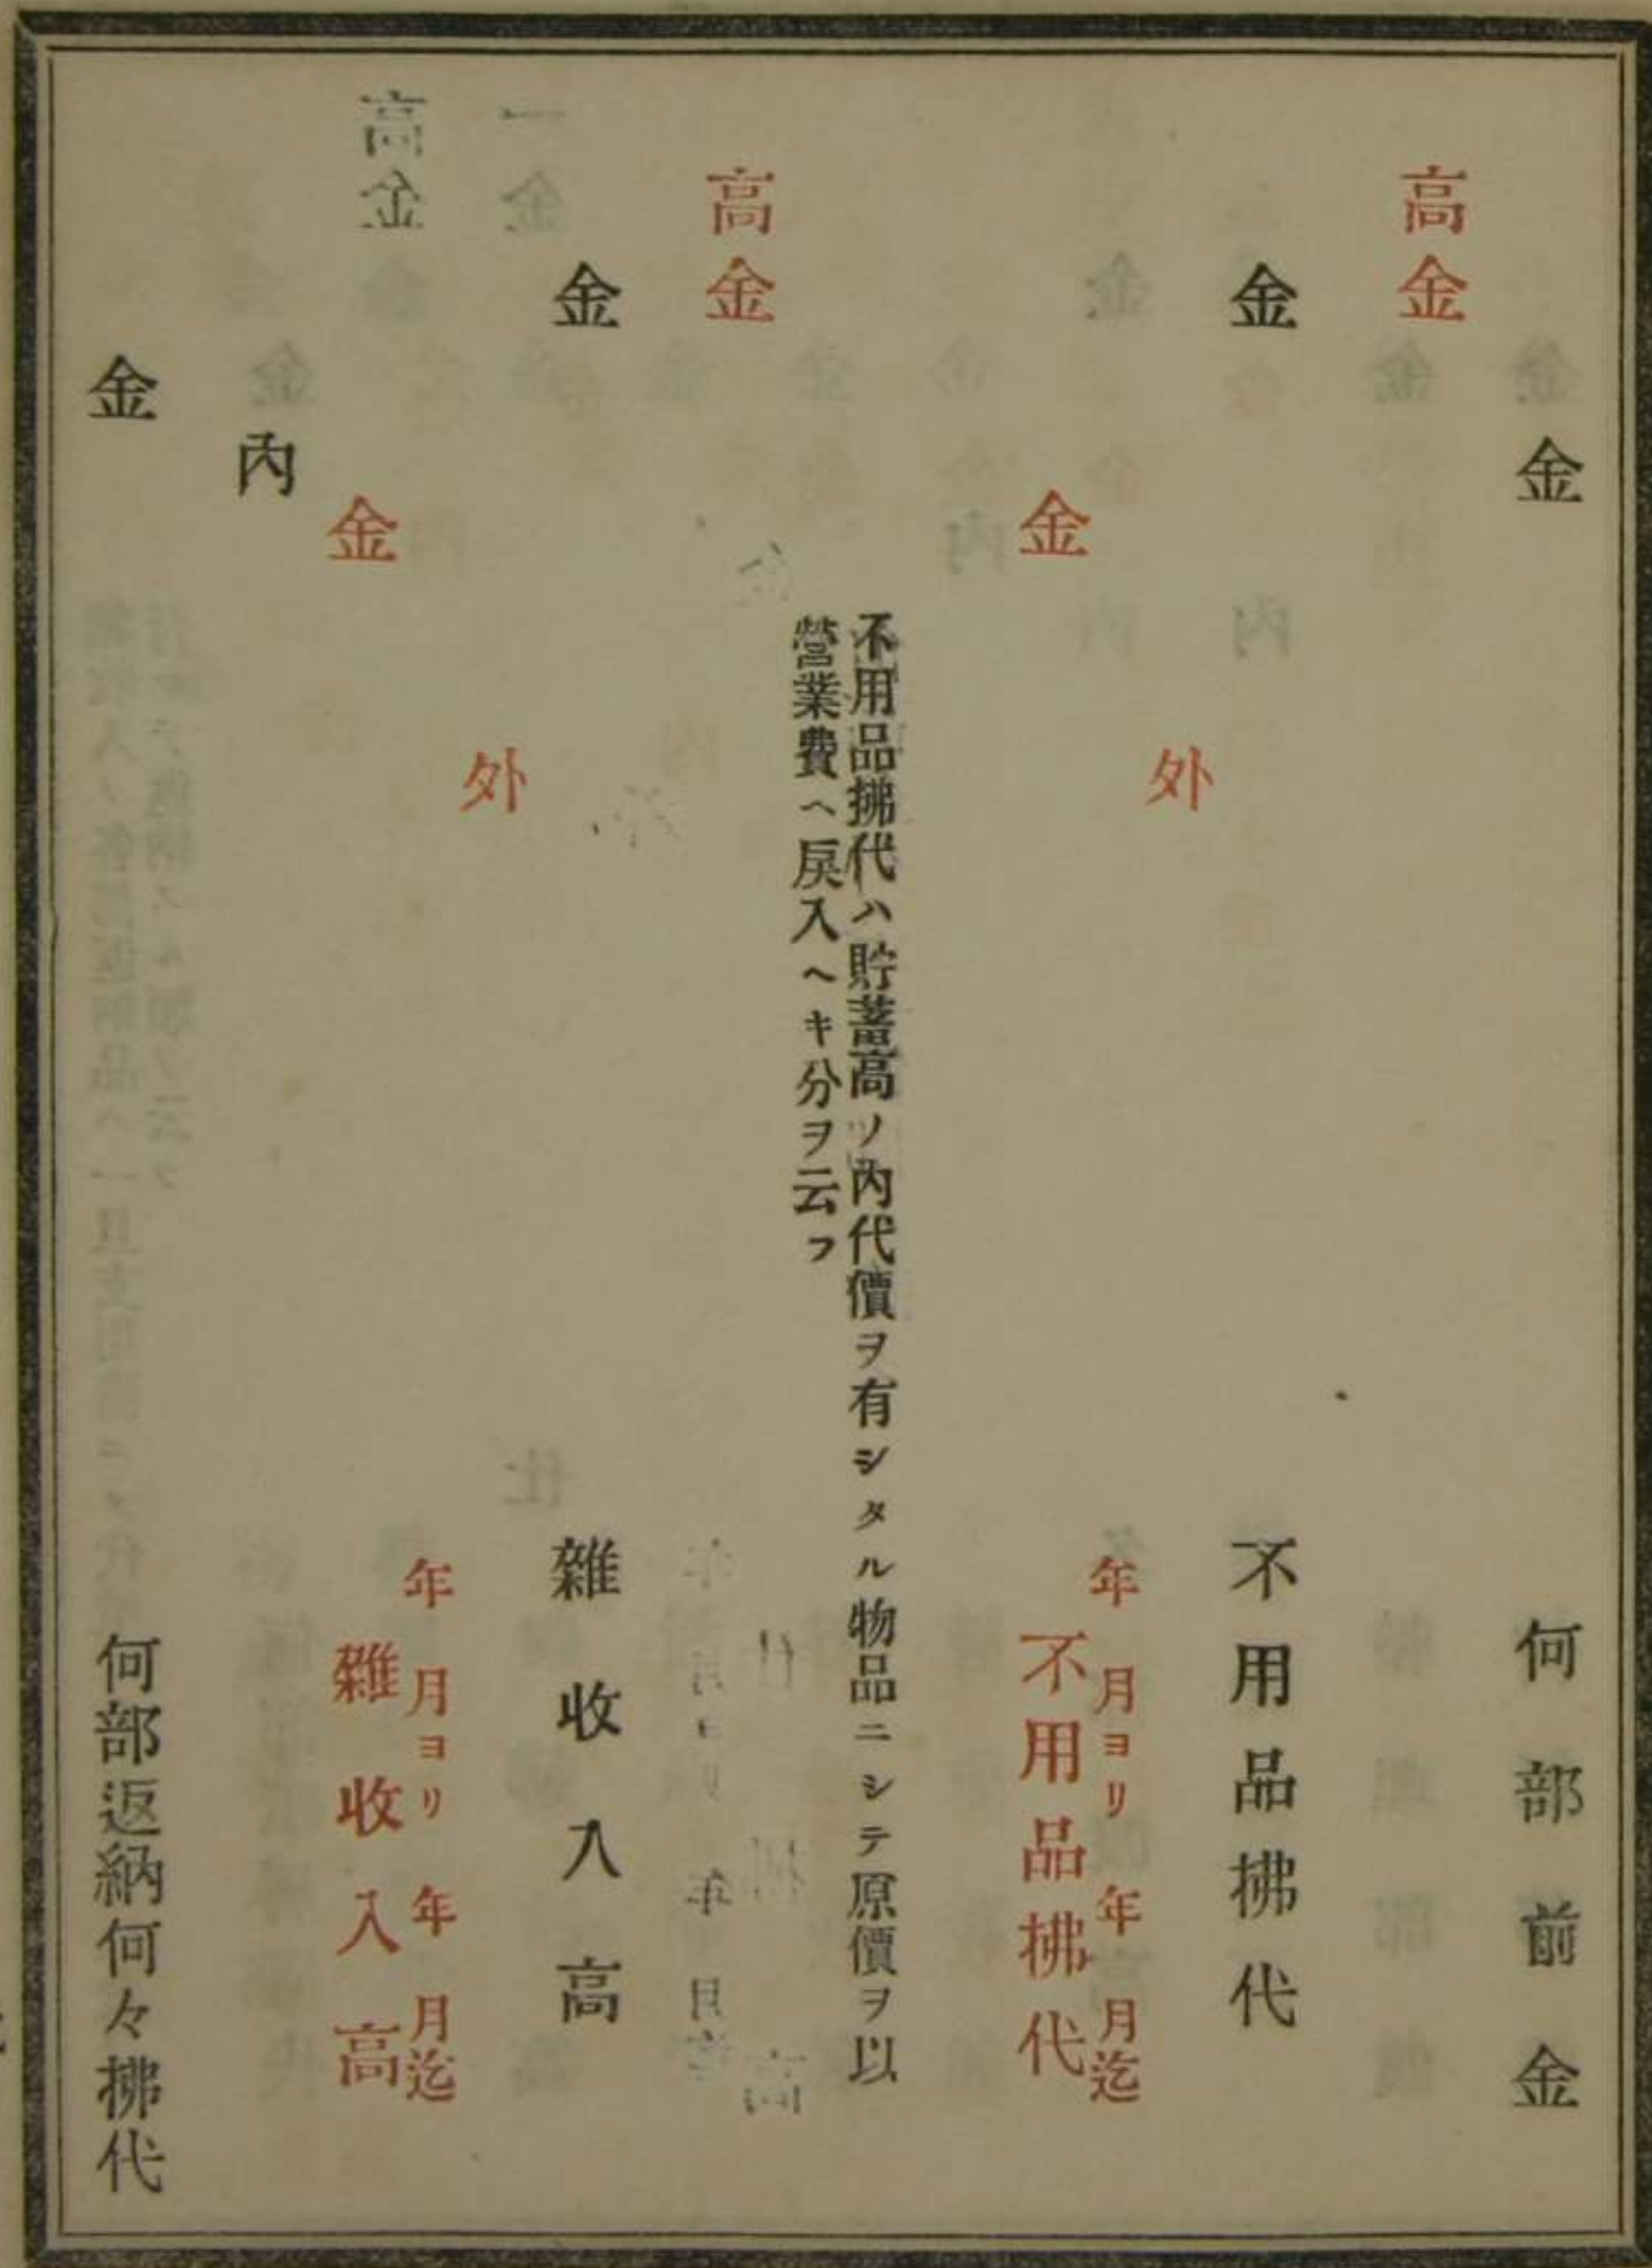 金 何部前金
高金
金 不用品拂代
外
年 月ヨリ 年 月迄
金 不用品拂代
不用品拂代ハ貯蓄高ノ內代價ヲ有シタル物品ニシテ原價ヲ以
營業費ヘ戾入ヘキ分ヲ云フ
高金
金 雜收入高
外
年 月ヨリ 年 月迄
金 雜收入高
內
金 何部返納何々拂代